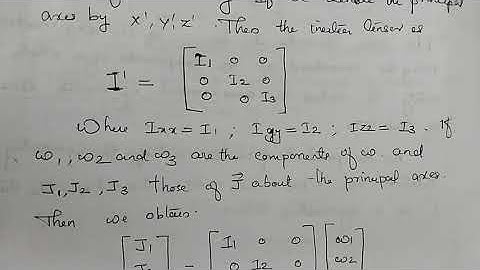 axes by x', y', z'. Then the inertia tensor is
I' = [ I1 0 0
0 I2 0
0 0 I3 ]
Where Ixx = I1 ; Iyy = I2 ; Izz = I3 . If
ω1, ω2 and ω3 are the components of ω and
J1, J2, J3 those of J⃗ about the principal axes.
Then we obtain.
[ J1 [ I1 0 0 [ ω1
= 0 I2 0 ω2